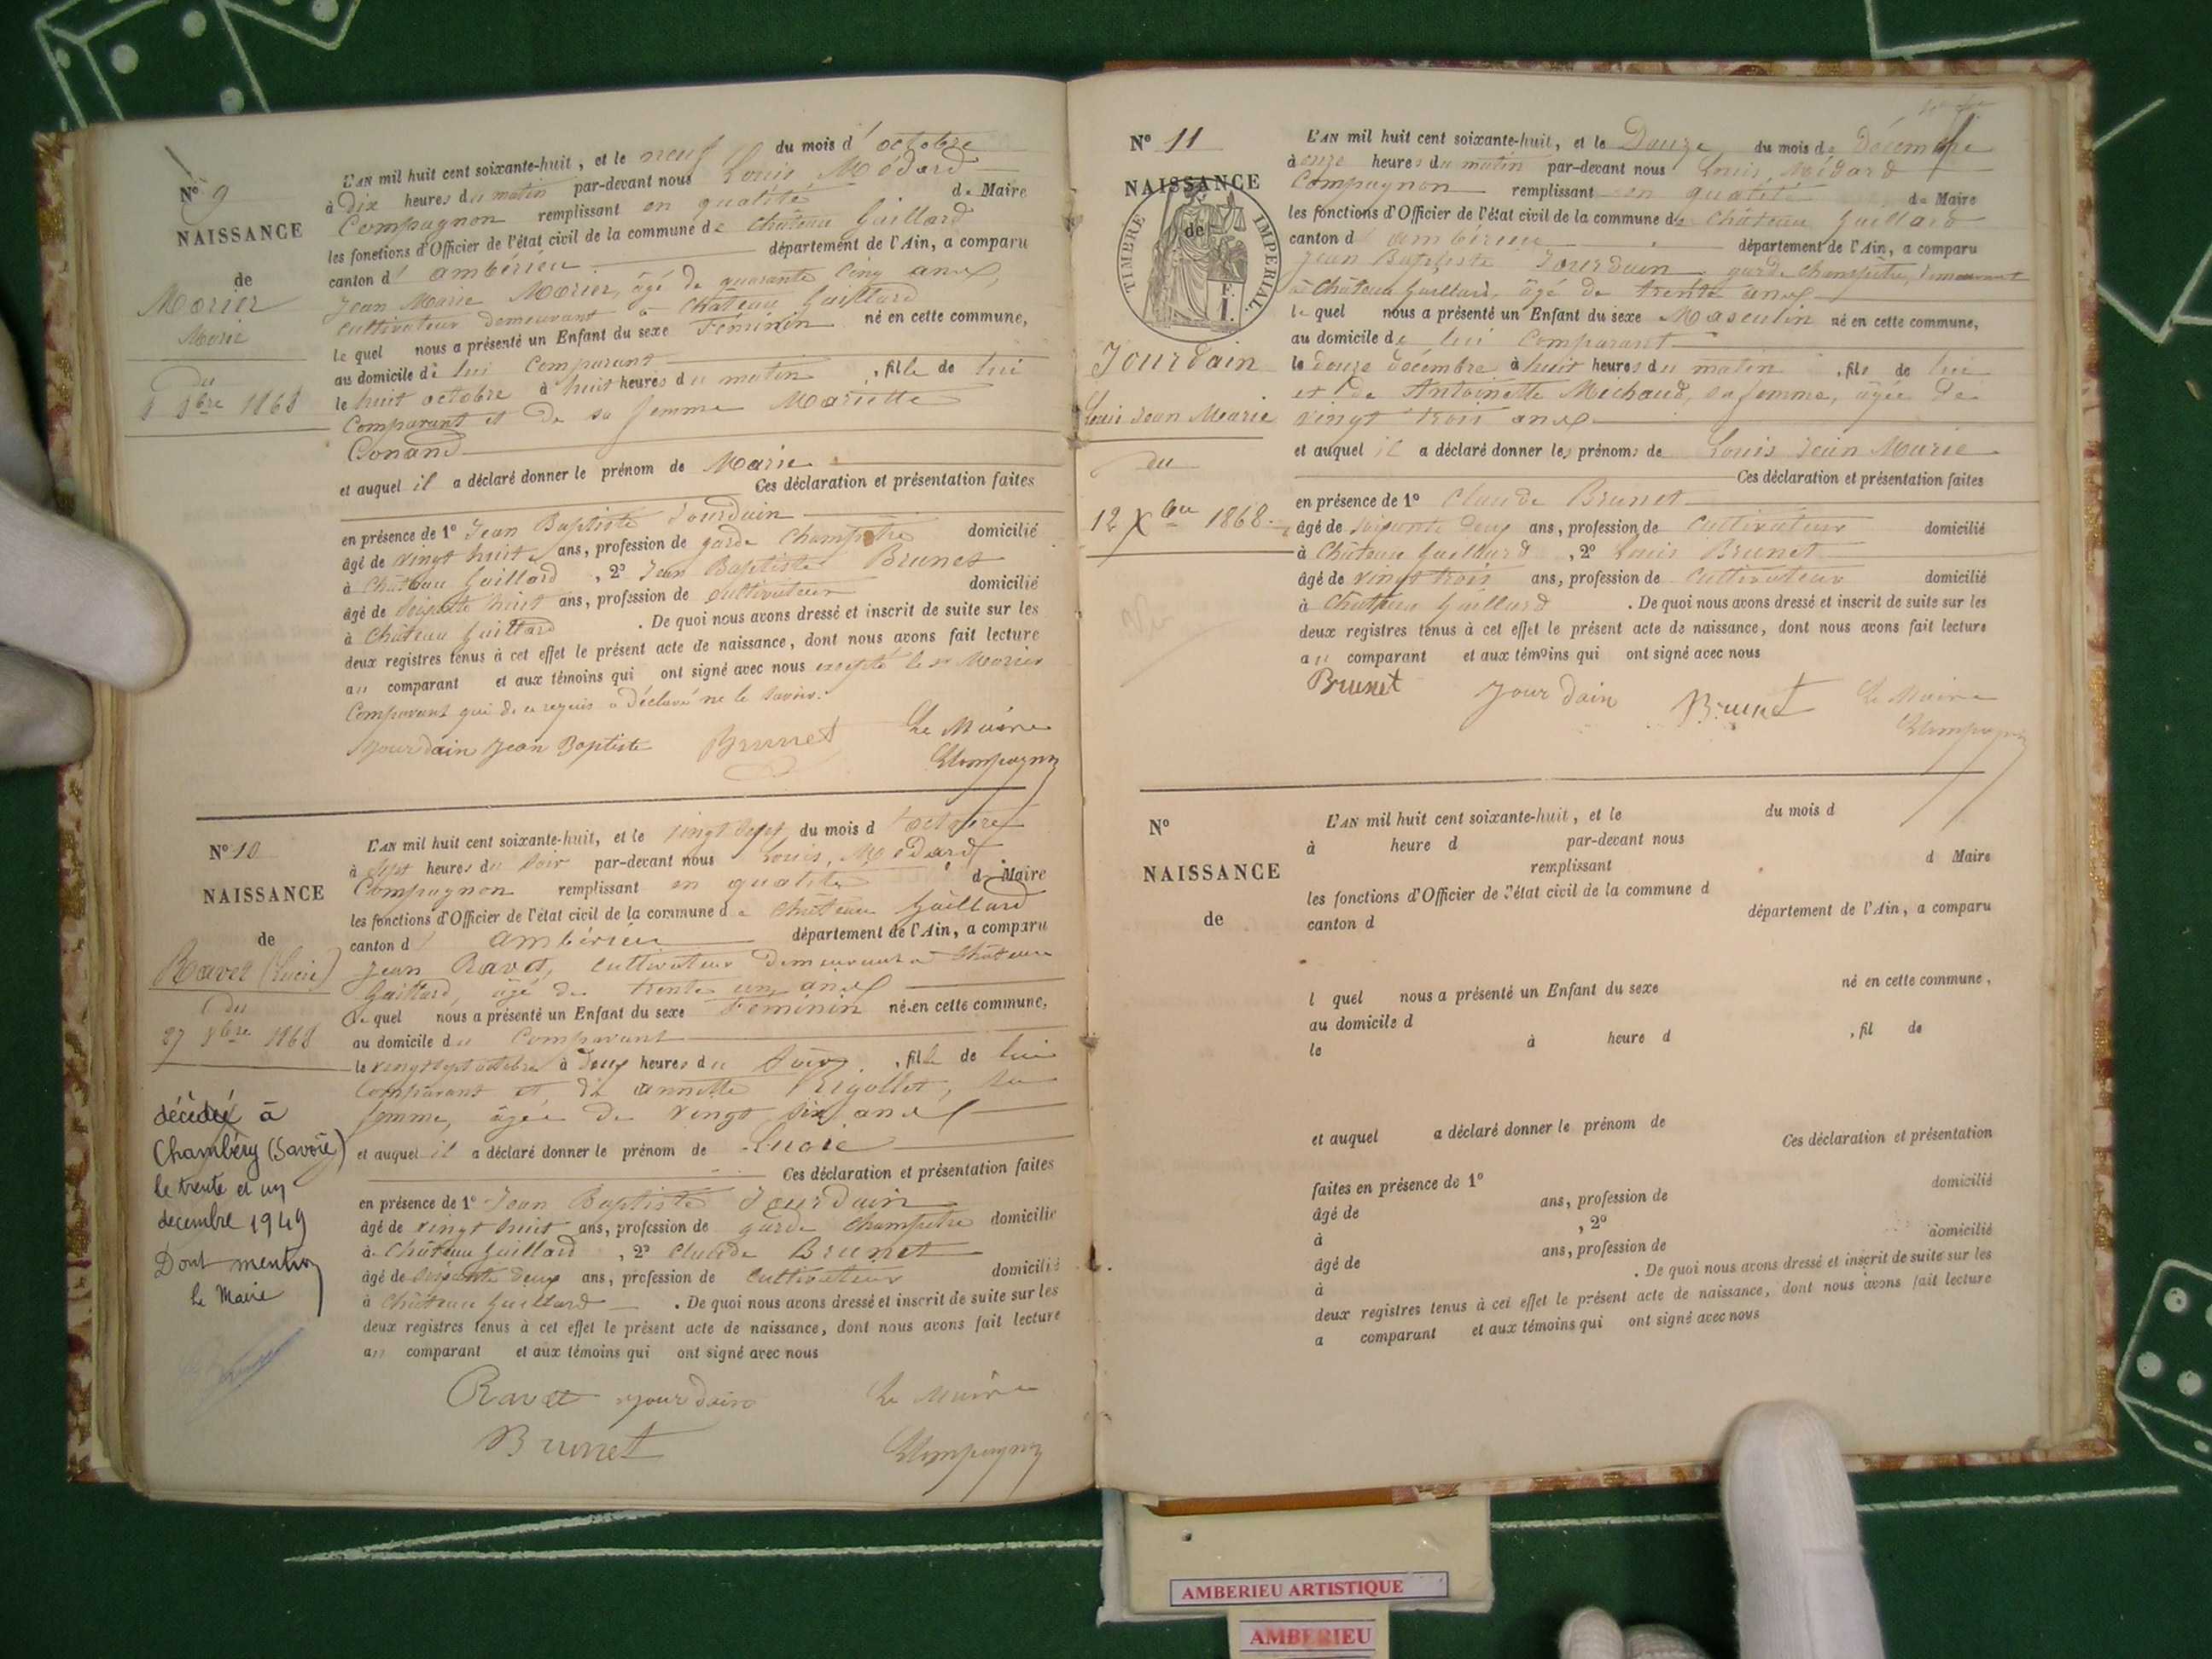 N° 9
NAISSANCE
de
Morier
Marie
du
8 8bre 1868
L'AN mil huit cent soixante-huit, et le neuf du mois d'octobre
à Dix heures du matin par-devant nous Louis Médard
Compagnon remplissant en qualité de Maire
les fonctions d'Officier de l'état civil de la commune de Château Gaillard
canton d'ambérieu département de l'Ain, a comparu
Jean Marie Morier, âgé de quarante cinq ans,
cultivateur demeurant à Château Gaillard
le quel nous a présenté un Enfant du sexe Féminin né en cette commune,
au domicile de lui Comparant
le huit octobre à huit heures du matin, fille de lui
Comparant et de sa femme Mariette
Conand
et auquel il a déclaré donner le prénom de Marie
Ces déclaration et présentation faites
en présence de 1° Jean Baptiste Jourdain
âgé de vingt huit ans, profession de garde Champêtre domicilié
à Château Gaillard, 2° Jean Baptiste Brunet
âgé de soixante huit ans, profession de cultivateur domicilié
à Château Gaillard. De quoi nous avons dressé et inscrit de suite sur les
deux registres tenus à cet effet le présent acte de naissance, dont nous avons fait lecture
au comparant et aux témoins qui ont signé avec nous excepté le sr Morier
Comparant qui de ce requis a déclaré ne le savoir.
Jourdain Jean Baptiste Brunet Le Maire
LCompagnon
N° 10
NAISSANCE
de
Ravet (Lucie)
du
27 8bre 1868
décédée à
Chambéry (Savoie)
le trente et un
décembre 1949
Dont mention
Le Maire
L'AN mil huit cent soixante-huit, et le vingt sept du mois d'octobre
à sept heures du soir par-devant nous Louis, Médard
Compagnon remplissant en qualité de Maire
les fonctions d'Officier de l'état civil de la commune de Château Gaillard
canton d'ambérieu département de l'Ain, a comparu
Jean Ravet, cultivateur demeurant à Château
Gaillard, âgé de trente un ans
Le quel nous a présenté un Enfant du sexe Féminin né en cette commune,
au domicile du Comparant
le vingt sept octobre à deux heures du soir, fille de lui
Comparant et de annette Rigollet, sa
femme, âgée de vingt six ans
et auquel il a déclaré donner le prénom de Lucie
Ces déclaration et présentation faites
en présence de 1° Jean Baptiste Jourdain
âgé de vingt huit ans, profession de garde Champêtre domicilié
à Château Gaillard, 2° Claude Brunet
âgé de soixante deux ans, profession de cultivateur domicilié
à Château Gaillard. De quoi nous avons dressé et inscrit de suite sur les
deux registres tenus à cet effet le présent acte de naissance, dont nous avons fait lecture
au comparant et aux témoins qui ont signé avec nous
Ravet Jourdain Le Maire
Brunet LCompagnon
N° 11
NAISSANCE
de
TIMBRE IMPERIAL
Jourdain
Louis Jean Marie
du
12 Xbre 1868.
L'AN mil huit cent soixante-huit, et le Douze du mois de décembre
à onze heures du matin par-devant nous Louis, Médard
Compagnon remplissant en qualité de Maire
les fonctions d'Officier de l'état civil de la commune de Château Gaillard
canton d'ambérieu département de l'Ain, a comparu
Jean Baptiste Jourdain garde champêtre, demeurant
à Château Gaillard, âgé de trente ans
le quel nous a présenté un Enfant du sexe Masculin né en cette commune,
au domicile de lui Comparant
le douze décembre à huit heures du matin, fils de lui
et de Antoinette Michaud, sa femme, âgée de
vingt trois ans
et auquel il a déclaré donner les prénoms de Louis Jean Marie
Ces déclaration et présentation faites
en présence de 1° Claude Brunet
âgé de soixante deux ans, profession de Cultivateur domicilié
à Château Gaillard, 2° Louis Brunet
âgé de vingt trois ans, profession de Cultivateur domicilié
à Château Gaillard. De quoi nous avons dressé et inscrit de suite sur les
deux registres tenus à cet effet le présent acte de naissance, dont nous avons fait lecture
au comparant et aux témoins qui ont signé avec nous
Brunet Jourdain Brunet Le Maire
LCompagnon
N°
NAISSANCE
de
L'AN mil huit cent soixante-huit, et le du mois d
à heure d par-devant nous
remplissant d Maire
les fonctions d'Officier de l'état civil de la commune d
canton d département de l'Ain, a comparu
l quel nous a présenté un Enfant du sexe né en cette commune,
au domicile d
le à heure d , fil de
et auquel a déclaré donner le prénom de
Ces déclaration et présentation
faites en présence de 1°
âgé de ans, profession de domicilié
à , 2°
âgé de ans, profession de domicilié
à . De quoi nous avons dressé et inscrit de suite sur les
deux registres tenus à cet effet le présent acte de naissance, dont nous avons fait lecture
a comparant et aux témoins qui ont signé avec nous
AMBERIEU ARTISTIQUE
AMBERIEU